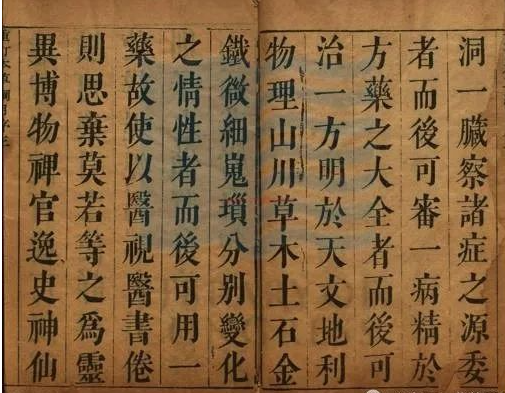 洞一臟察諸症之源委
者而後可審一病精於
方藥之大全者而後可
治一方明於天文地利
物理山川草木土石金
鐵微細嵬瑣分別變化
之情性者而後可用一
藥故使以醫視醫書倦
則思棄莫若等之為靈
異博物稗官逸史神仙